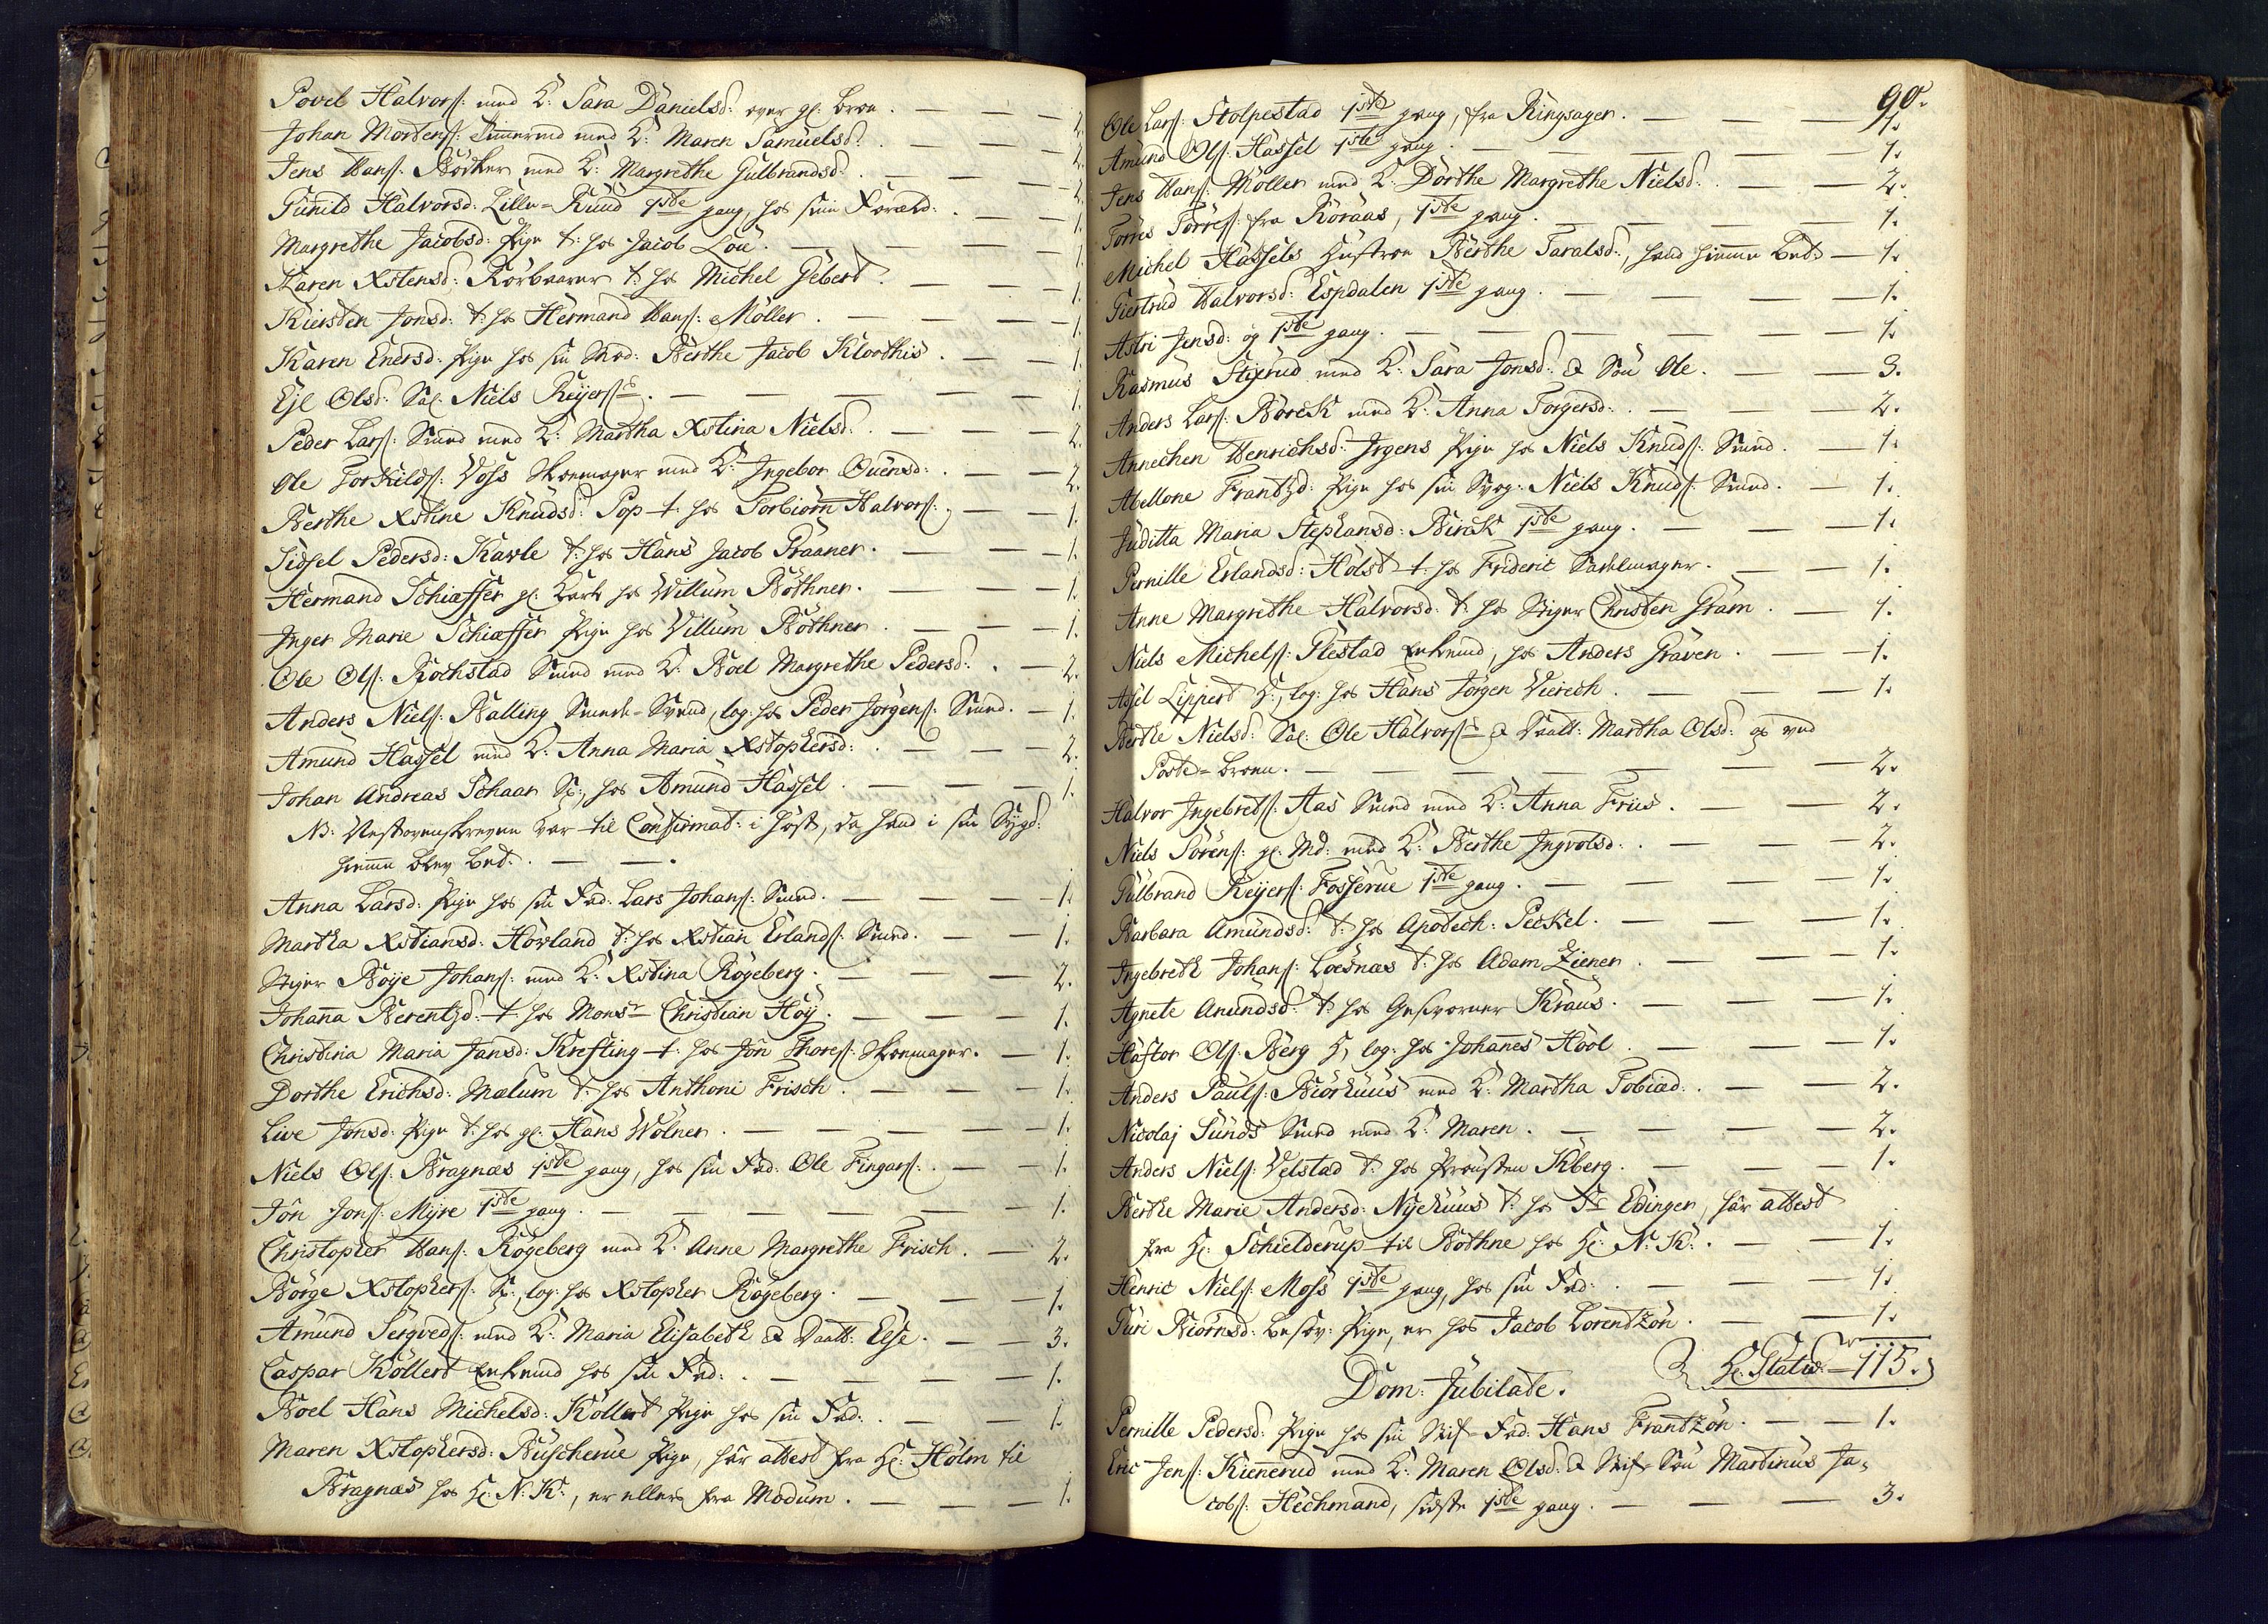 Povel Halvors: med K: Sara Danielsd: over gl: broe. 2.
Johan Mortens: Timermd med K: Maren Samuelsd: 2.
Jens Hans: Bödker med K: Margrethe Gulbrandsd: 2.
Gunild Halvorsd: Lille-Ruud 1ste gang, hos sine Foræld: 1.
Margrethe Jacobsd: Pige t: hos Jacob Loü. 1.
Karen Xstensd: Rörbaarer t: hos Michel Gebert. 1.
Kiersten Jonsd: t: hos Hermand Hans: Möller. 1.
Karen Enersd: Pige hos sin Mod: Berthe Jacob Kloothis. 1.
Eje Olsd: Sal: Niels Reijers: 1.
Peder Lars: Smed med K: Martha Xstina Nielsd: 2.
Ole Torkilds: Voss Skoemager med K: Ingebor Ouensd: 2.
Berthe Xstine Knudsd: Pop t: hos Torbiörn Halvors: 1.
Sidsel Pedersd: Kavle t: hos Hans Jacob Graaner. 1.
Hermand Schiæffer gl: Karl hos Willum Böthner. 1.
Inger Marie Schiæffer Pige hos Villum Böthner 1.
Ole Ols: Kochstad Smed med K: Boel Margrethe Pedersd: 2.
Anders Niels: Balling Smede-Svend, log: hos Peder Jörgens: Smed. 1.
Amund Hassel med K: Anna Maria Xstophersd: 2.
Johan Andreas Schaar S:, hos Amund Hassel 1.
NB: Nestovenskreven var til Confirmat: i höst, da hand i sin Sygd:
hiemme blev bet:
Anna Larsd: Pige hos sin Fad: Lars Johans: Smed. 1.
Martha Xstiansd: Howland t: hos Xstian Erlands: Smed. 1.
Stiger Böije Johans: med K: Xstina Rögeberg. 2.
Johanna Berentzd: t: hos Monsr Christian Höij. 1.
Christina Maria Jansd: Krefting t: hos Jön Thores: Skoemager. 1.
Dorthe Erichsd: Mælum t: hos Anthoni Frisch. 1.
Live Jonsd: Pige t: hos gl: Hans Wölner. 1.
Niels Ols: Bragnæs 1ste gang, hos sin Fad: Ole Fingars: 1.
Jön Jons: Myre 1ste gang. 1.
Christopher Hans: Rögeberg med K: Anne Margrethe Frisch. 2.
Börge Xstophers: S:, log: hos Xstopher Rögeberg. 1.
Amund Sergveds: med K: Maria Elisabeth & Daatt: Else. 3.
Caspar Köllert Enkemd hos sin Fad: 1.
Boel Hans Michelsd: Köllert Pige hos sin Fad: 1.
Maren Xstophersd: Buscherüe Pige, har attest fra Hr: Holm til
Bragnæs hos Hr: N: K:, er ellers fra Modum. 1.
90.
Ole Lars: Stolpestad 1ste gang, fra Ringsager. 1.
Amund Ols: Hassel 1ste gang. 1.
Jens Hans: Möller med K: Dorthe Margrethe Nielsd: 2.
Torres Torres: fra Röraas, 1ste gang. 1.
Michel Hassels Hustroe Berthe Taralsd:, hend hiemme bet: 1.
Giertrud Halvorsd: Espdalen 1ste gang. 1.
Astri Jensd: og 1ste gang. 1.
Rasmus Stixrud med K: Sara Jonsd: & Sön Ole. 3.
Anders Lars: Borck med K: Anna Torgersd: 2.
Annechen Henrichsd: Irgens Pige hos Niels Knuds: Smed. 1.
Abellone Frantzd: Pige hos sin Svog: Niels Knuds: Smed. 1.
Juditta Maria Stephansd: Birck 1ste gang. 1.
Pernille Erlandsd: Holst t: hos Frideric Sadelmager. 1.
Anne Margrethe Halvorsd: t: hos Stiger Christen Gram. 1.
Niels Michels: Plestad Enkemd, hos Anders Graven. 1.
Assel Lippert S:, log: hos Hans Jörgen Vierech. 1.
Berthe Nielsd: Sal: Ole Halvors: & Daatt: Martha Olsd: og ved
Porte-broen. 2.
Halvor Ingebrets: Aas Smed med K: Anna Friis. 2.
Niels Sörens: gl: Md: med K: Berthe Ingvolsd: 2.
Gulbrand Reijers: Fosserue 1ste gang. 1.
Barbara Amundsd: t: hos Apothech: Peckel. 1.
Ingebreth Johans: Loesnæs t: hos Adam Ziener. 1.
Agnete Anundsd: t: hos Geschworner Kraus. 1.
Haftor Ols: Berg S:, log: hos Johannes Hööl. 1.
Anders Pauls: Biörhuus med K: Martha Tobiæd: 2.
Nicolaj Sünds Smed med K: Maren. 2.
Anders Niels: Velstad t: hos Prousten Kberg. 1.
Berthe Marie Andersd: Nyehuus t: hos Sr Edinger, har attest
fra Hr: Schielderup til Böthne hos Hr: N: K: 1.
Henric Niels: Moss 1ste gang, hos sin Fad: 1.
Guri Biörnsd: besov: Pige, er hos Jacob Lorentzön. 1.
Hr: Statw: 115.
Dom: Jubilate.
Pernille Pedersd: Pige hos sin Stif-Fad: Hans Frantzön. 1.
Eric Jens: Kiennerud med K: Maren Olsd: & Stif-Sön Martinus Ja-
cobs: Hechmand, sidste 1ste gang. 3.